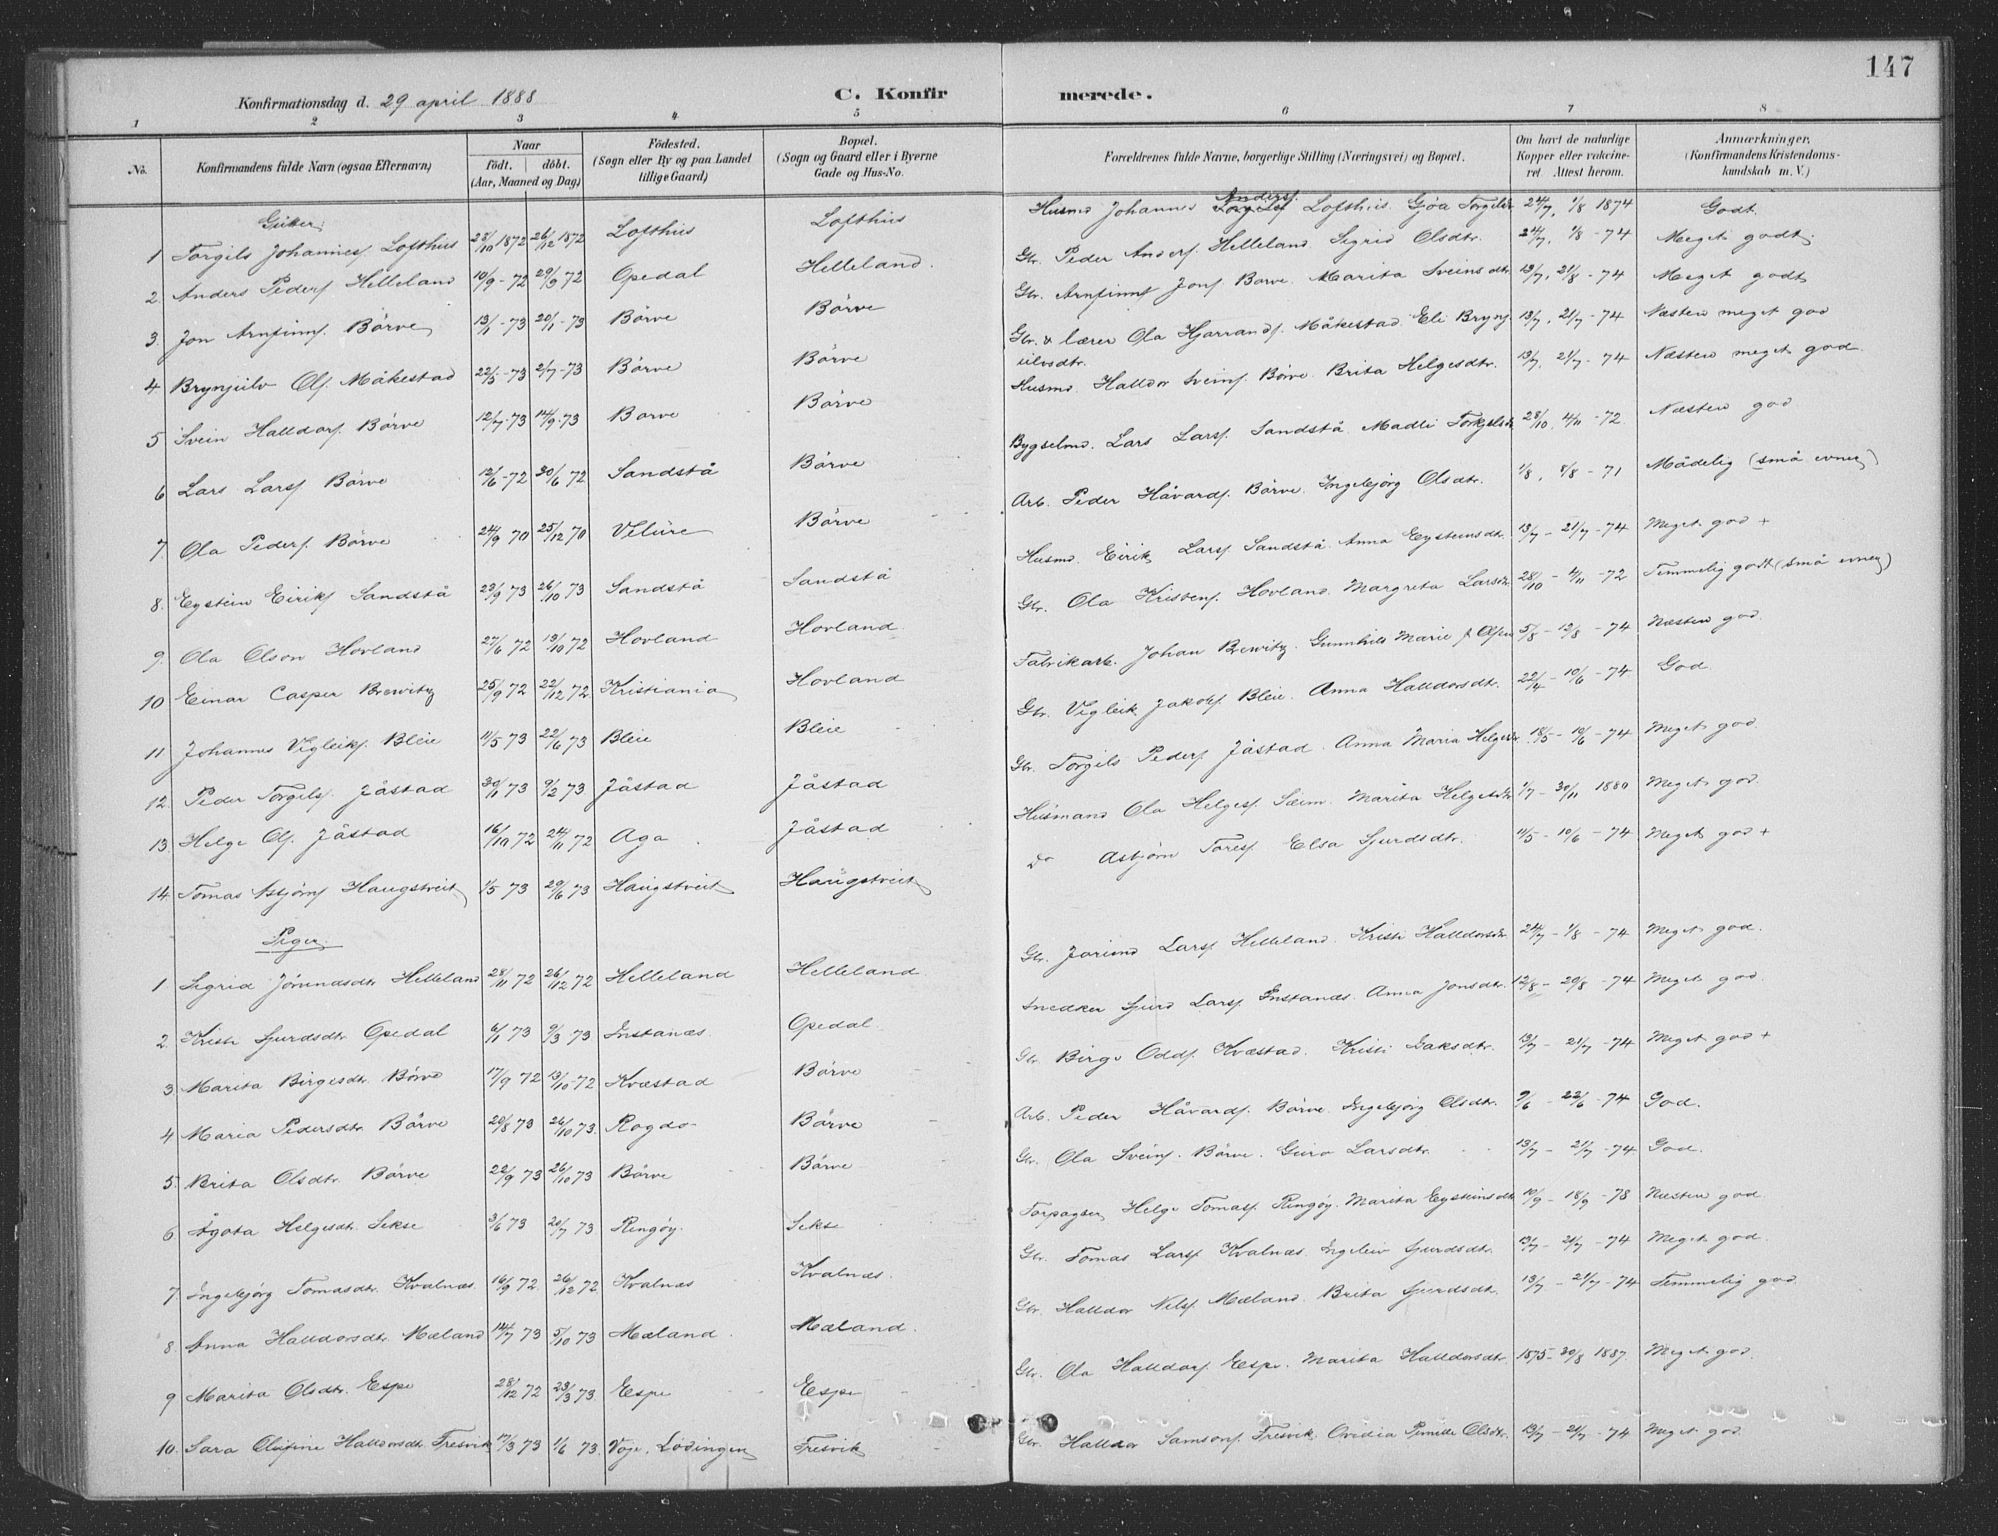 147
Konfirmationsdag d. 29 april 1888
C. Konfirmerede.
1 2 3 4 5 6 7 8
No. | Konfirmandens fulde Navn (ogsaa Efternavn) | Naar født. døbt. (Aar, Maaned og Dag) | Födested. (Sogn eller By og paa Landet tillige Gaard) | Bopæl. (Sogn og Gaard eller i Byerne Gade og Hus-No. | Forældrenes fulde Navne, borgerlige Stilling (Næringsvei) og Bopæl. | Om havt de naturlige Kopper eller vakcineret Attest herom. | Anmærkninger, (Konfirmandens Kristendomskundskab m. V.)
Gutter
1 Torgils Johannesf. Lofthus 28/10 1872 26/12 1872 Lofthus Lofthus Husmd Johannes Andersf. Lofthus. Gjøa Torgilsdr 24/7, 1/8 1874 Godt.
2. Anders Pedersf. Helleland 10/9 - 72 29/9 72 Opedal Helleland. Gbr. Peder Andersf. Helleland Sigrid Olsdtr. 24/7, 1/8 - 74 Meget godt.
3. Jon Arnfinnsf. Börve 13/1 - 73 20/1 - 73 Börve Börve Gbr. Arnfinn Jonsf. Borve. Marita Sveinsdtr 13/7, 21/8 - 74 Meget godt
4 Brynjulv Olsf. Måkestad 22/5 - 73 2/7 - 73 Börve Börve Gbr. & lærer Ola Hjarrandsf. Måkestad Eli Brynjulvsdtr. 13/7, 21/7 - 74 Næsten meget god
5 Svein Halldorsf. Börve 12/7 - 73 14/9 - 73 Borve Börve Husmd. Halldor Sveinsf. Börve. Brita Helgesdtr. 13/7, 21/7 - 74 Næsten meget god
6 Lars Larsf Börve 12/6 - 72 30/6 72 Sandstå Börve Bygselmd. Lars Larsf. Sandstå. Madli Torkjelsdr 28/10, 4/11 - 72. Næsten god
7. Ola Pedersf. Börve 24/9 70 25/12 70 Velure Börve Arb. Peder Håvardsf. Börve. Ingebjørg Olsdtr. 1/8, 8/8 - 71 Mådelig (små evner)
8. Eystein Eiriksf. Sandstå 23/9 73 26/10 73 Sandstå Sandstå Husmd. Eirik Larsf Sandstå. Anna Eysteinsdtr. 13/7 - 21/7 - 74 Meget god +
9. Ola Olson Hovland 27/6 72 13/10 72 Hovland Hovland. Gbr. Ola Kristensf. Hovland. Margreta Larsdtr. 28/10 - 4/11 - 72 Temmelig godt (små evner)
10 Einar Casper Brewitz 25/9 72 22/12 72 Kristiania Hovland Fabrikarb. Johan Brewitz. Gunnhild Marie f. Olsen 5/8 - 12/8 - 74 Næsten god.
11 Johannes Vigleiksf. Bleie 11/5 73 22/6 73 Bleie Bleie Gbr. Vigleik Jakobsf. Bleie. Anna Halldorsdtr. 22/4 - 10/6 - 74 God.
12. Peder Torgilsf. Jåstad 30/11 73 9/2 73 Jåstad Jåstad Gbr. Torgils Pedersf. Jåstad. Anna Maria Helgesdr 18/5 - 10/6 - 74 Meget god.
13. Helge Olsf. Jåstad 16/10 72 24/11 72 Aga Jåstad Husmand Ola Helgesf. Sæim. Marita Helgesdtr 1/7 - 30/11 1880 Meget god.
14. Tomas Asbjørnsf Haugstveit 1/5 73 29/6 73 Haugstveit Haugstveit do Asbjørn Toresf. Elsa Sjurdsdtr. 11/5 - 10/6 - 74 Meget god +
Piger
1 Sigrid Jörundsdtr Helleland 28/11 72 26/12 72 Helleland Helleland Gbr. Jorund Larsf Helleland. Kristi Halldorsdtr. 24/7 - 1/8 - 74 Meget god.
2. Kristi Sjurdsdtr. Opedal 6/1 73 9/3 - 73 Instanæs. Opedal. Snedker Sjurd Larsf. Instanæs. Anna Jonsdtr. 12/8 - 20/8 - 74 Meget god.
3 Marita Birgesdtr. Börve 17/9 72 13/10 - 72 Kvæstad Börve Gbr Birge Oddsf. Kvæstad. Kristi Isaksdtr. 13/7 - 21/7 - 74 Meget god +
4 Maria Pedersdtr. Börve 20/8 73 26/10 73. Rogdo Börve Arb. Peder Håvardsf. Börve. Ingebjørg Olsdtr. 9/6 - 22/6 - 74 God.
5. Brita Olsdtr. Börve 22/9 73 26/10 73 Börve Börve Gbr. Ola Sveinsf. Börve. Guro Larsdtr. 13/7 - 21/7 - 74 God.
6 Ågåta Helgesdtr. Sekse 3/6 73 20/7 73 Ringøy. Sekse Torpagser Helge Tomasf. Ringøy. Marita Eysteinsdtr 10/9 - 18/9 - 78 Næsten god.
7. Ingebjörg Tomasdtr. Kvalnæs 16/9 72. 26/12 72 Kvalnæs Kvalnæs. Gbr. Tomas Larsf. Kvalnæs. Ingeleiv Sjurdsdtr. 13/7 - 21/7 - 74 Meget god.
8. Anna Halldorsdtr. Mæland 14/7 73 5/10 73 Mæland. Mæland. Gbr. Halldor Nelsf. Mæland. Brita Sjurdsdtr. 13/7 - 21/7 - 74 Temmelig god.
9 Marita Olsdtr. Espe 28/12 72 23/3 73. Espe Espe Gbr. Ola Halldorsf. Espe. Marita Halldorsdtr. 1875 - 30/8 1887. Meget god.
10. Sara Olufine Halldorsdtr. Tresvik 17/3 73 1/6 73. Voje, Lödingen Tresvik Gbr. Halldor Samsonsf. Tresvik. Ovidia Pernille Olsdtr. 13/7 - 21/7 - 74 Meget god.